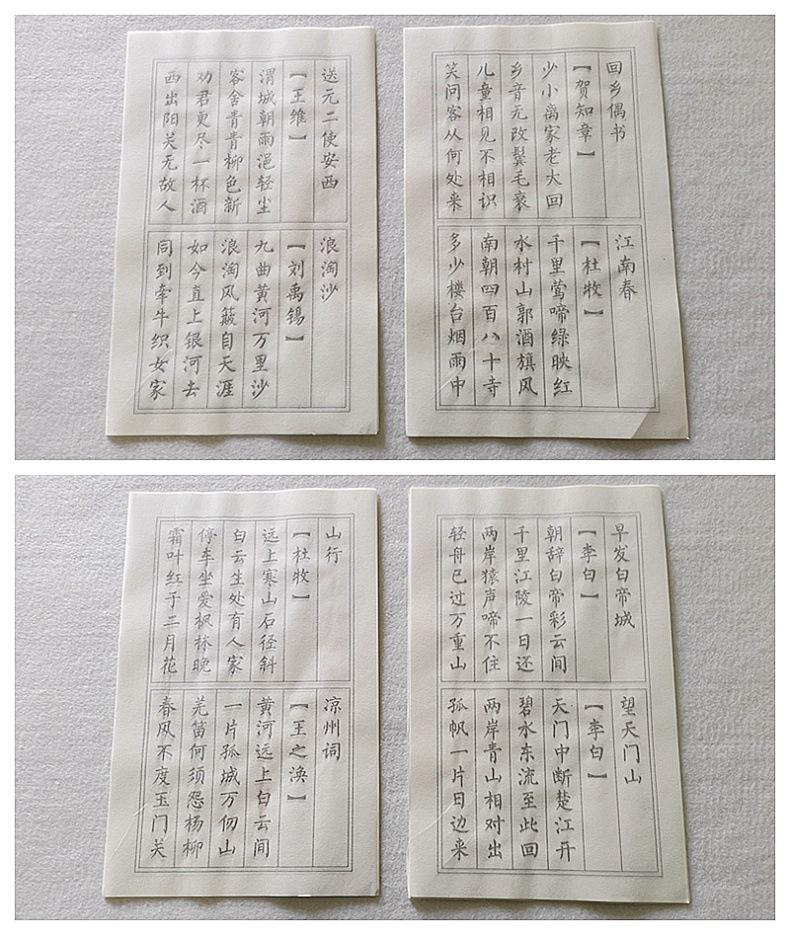 送元二使安西
【王维】
渭城朝雨浥轻尘
客舍青青柳色新
劝君更尽一杯酒
西出阳关无故人
浪淘沙
【刘禹锡】
九曲黄河万里沙
浪淘风簸自天涯
如今直上银河去
同到牵牛织女家
回乡偶书
【贺知章】
少小离家老大回
乡音无改鬓毛衰
儿童相见不相识
笑问客从何处来
江南春
【杜牧】
千里莺啼绿映红
水村山郭酒旗风
南朝四百八十寺
多少楼台烟雨中
山行
【杜牧】
远上寒山石径斜
白云生处有人家
停车坐爱枫林晚
霜叶红于二月花
凉州词
【王之涣】
黄河远上白云间
一片孤城万仞山
羌笛何须怨杨柳
春风不度玉门关
早发白帝城
【李白】
朝辞白帝彩云间
千里江陵一日还
两岸猿声啼不住
轻舟已过万重山
望天门山
【李白】
天门中断楚江开
碧水东流至此回
两岸青山相对出
孤帆一片日边来